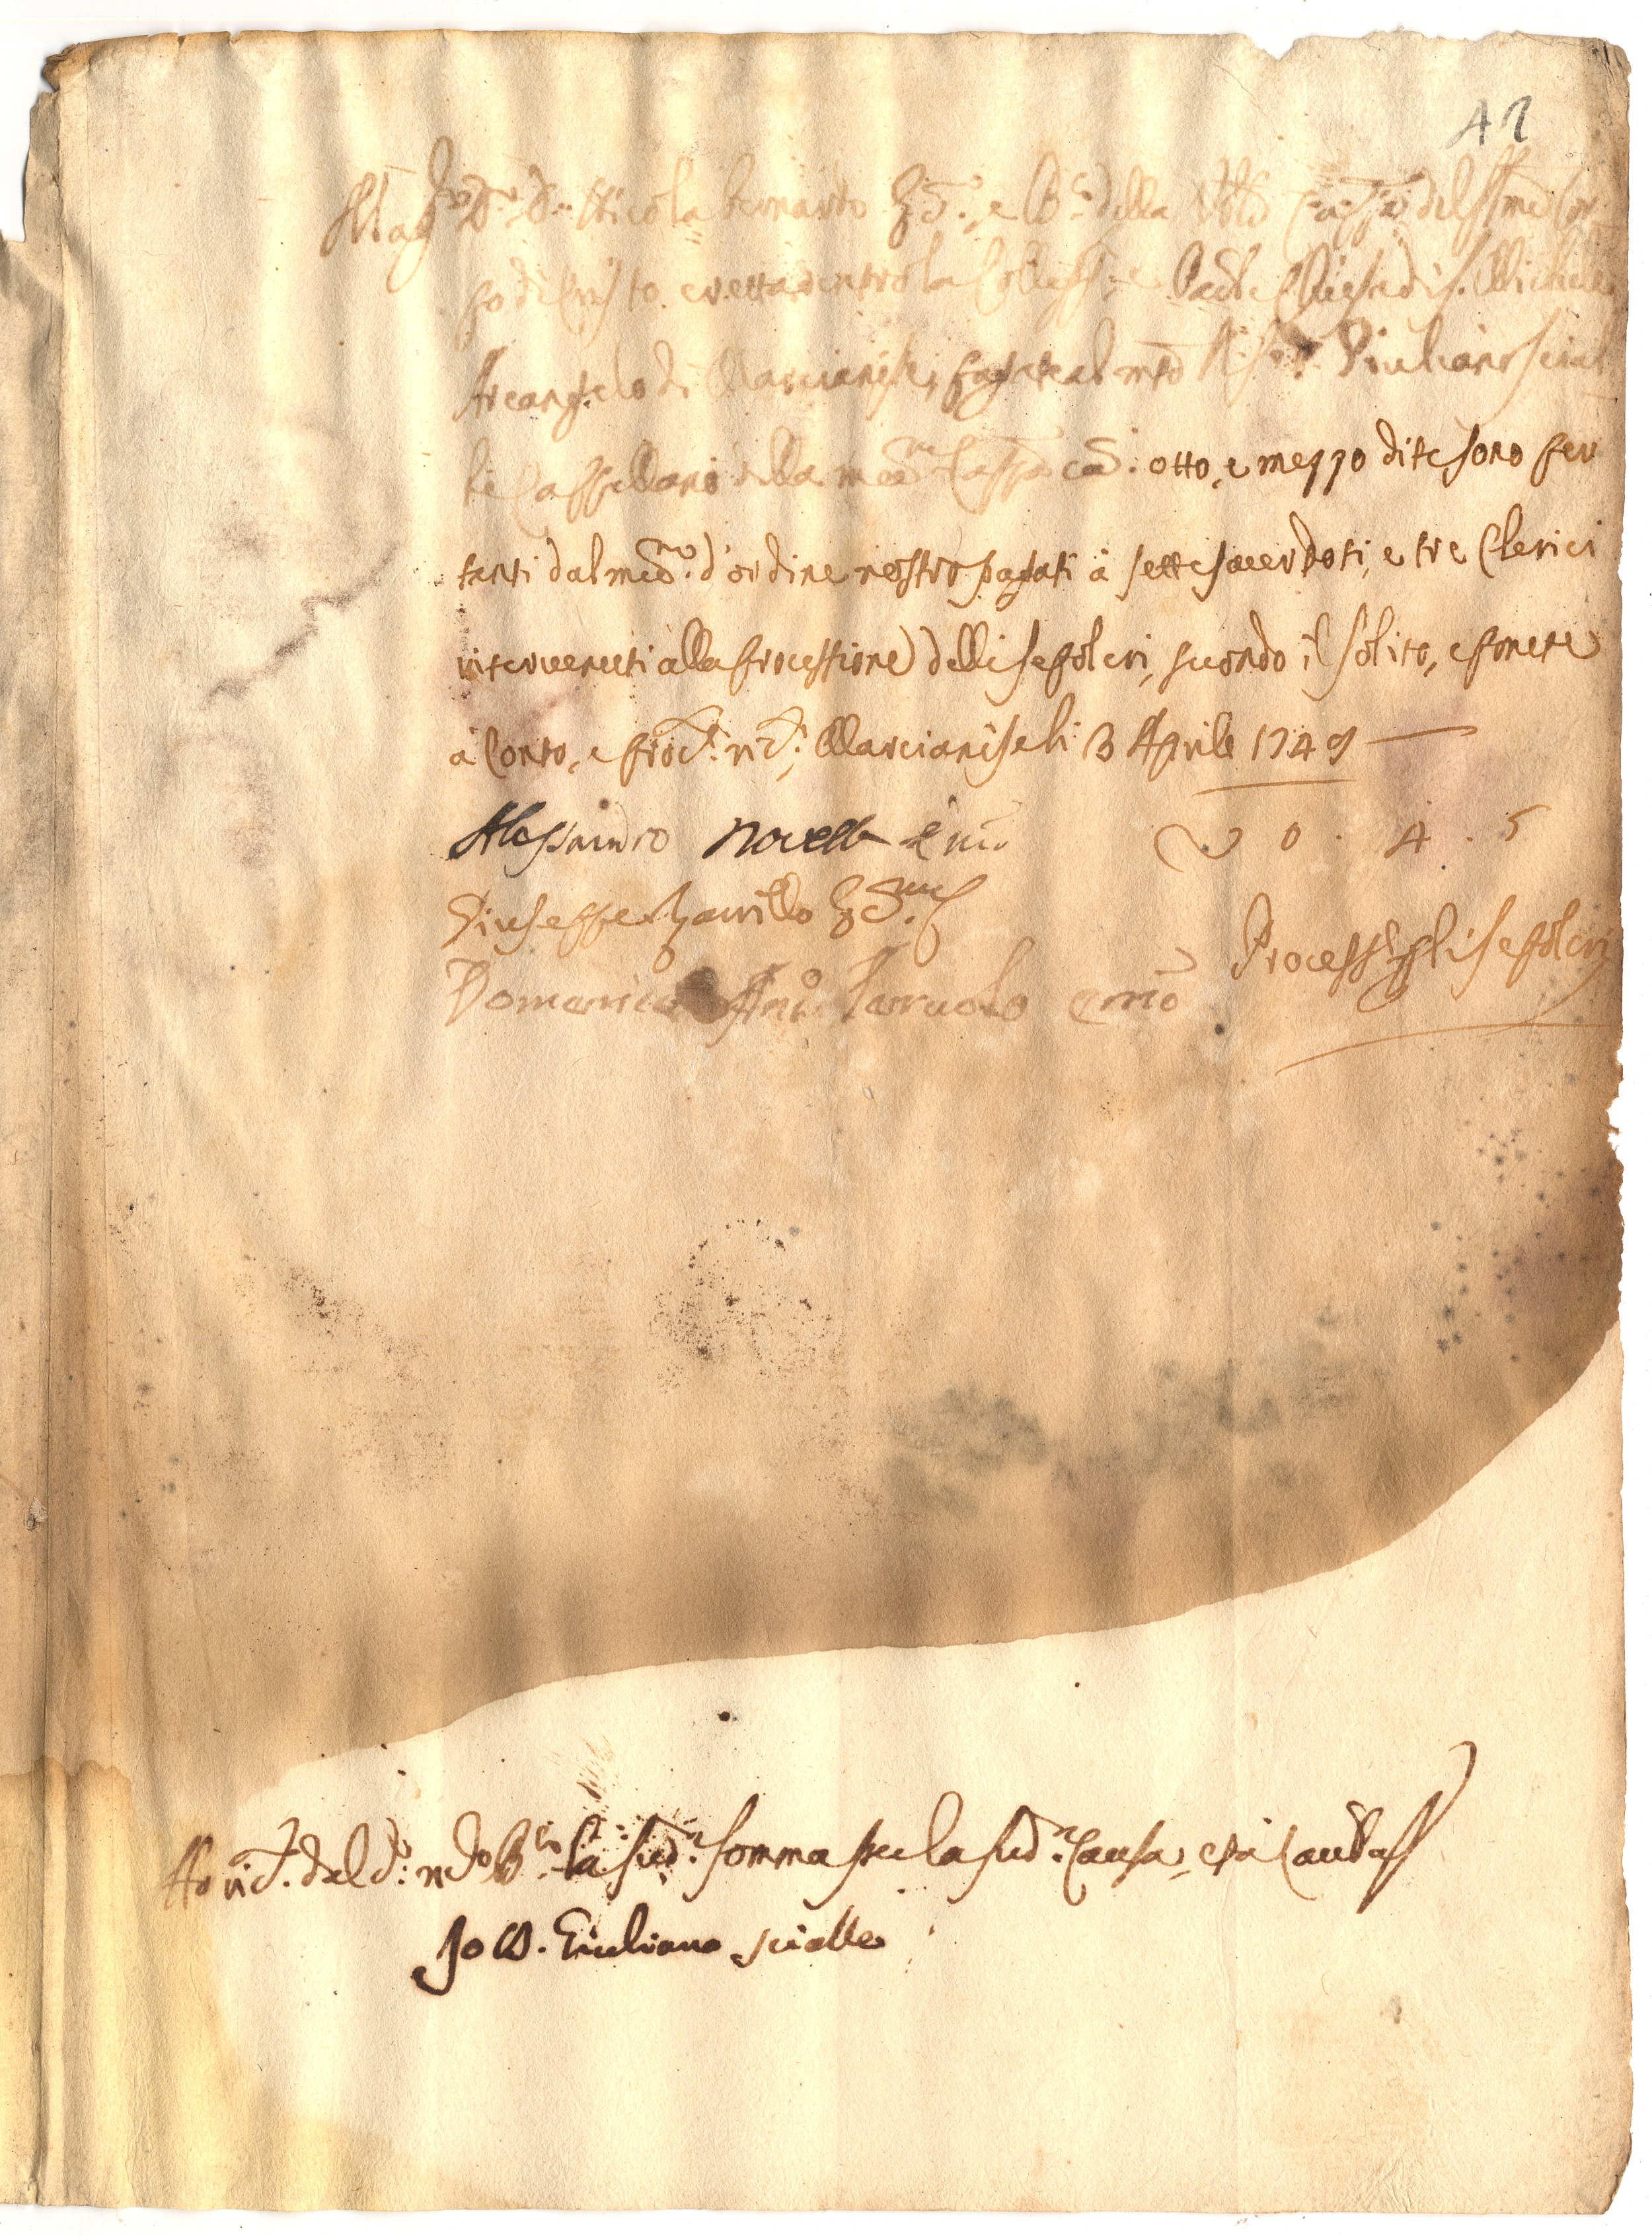 42
Mag.co D.r D. Nicola Bernardo Ec.o e B.re della Ven. Capp.a del SS.mo Cor
po de Cristo eretta dentro la Colleg.ta Chiesa di S. Michele
Arcangelo di Marcianise, pagate al R. S.r D. Giuliano Scial
le Cappellano della med.ma Capp.a ca. otto, e mezzo di tesono per
tanti dal med.mo d'ordine nostro pagati à sette sacerdoti, e tre Clerici
intervenuti alla processione delli sepolcri, secondo il solito, e ponete
à Conto, e proc. ric. Marcianise li 3 Aprile 1749
Alessandro Novelli
0 . 4 . 5
Giuseppe Zarrillo
Process. p li sepolcri
Domenico Ant.o Tarruolo
Ho ric. dal d.o la sud.a somma per la sud.a Causa,
Io D. Giuliano Scialle